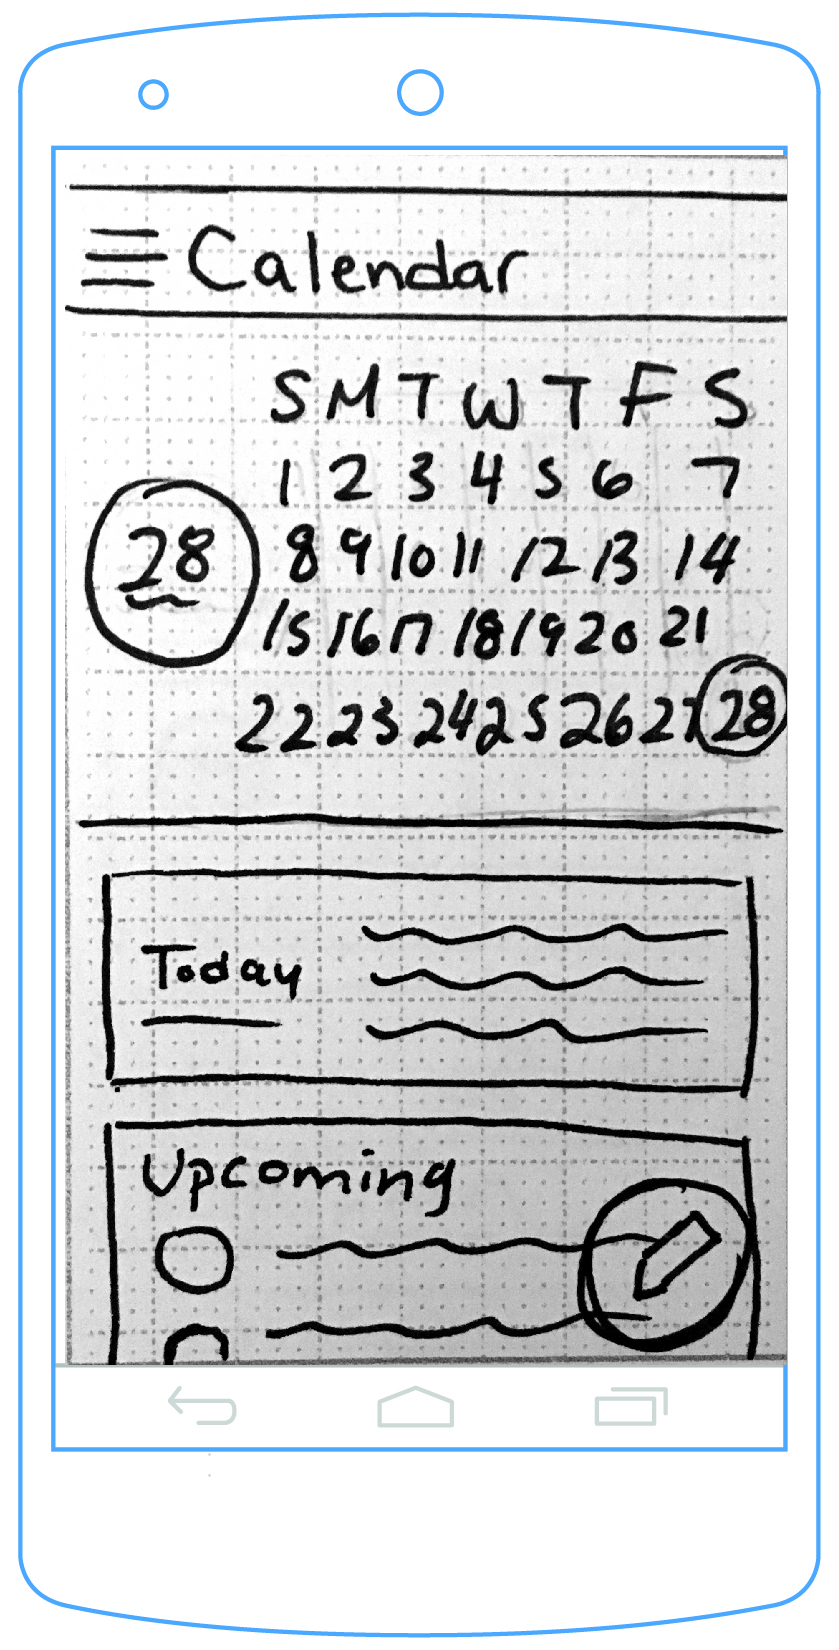 Calendar
S M T W T F S
1 2 3 4 5 6 7
28
8 9 10 11 12 13 14
15 16 17 18 19 20 21
22 23 24 25 26 27 28
Today
Upcoming